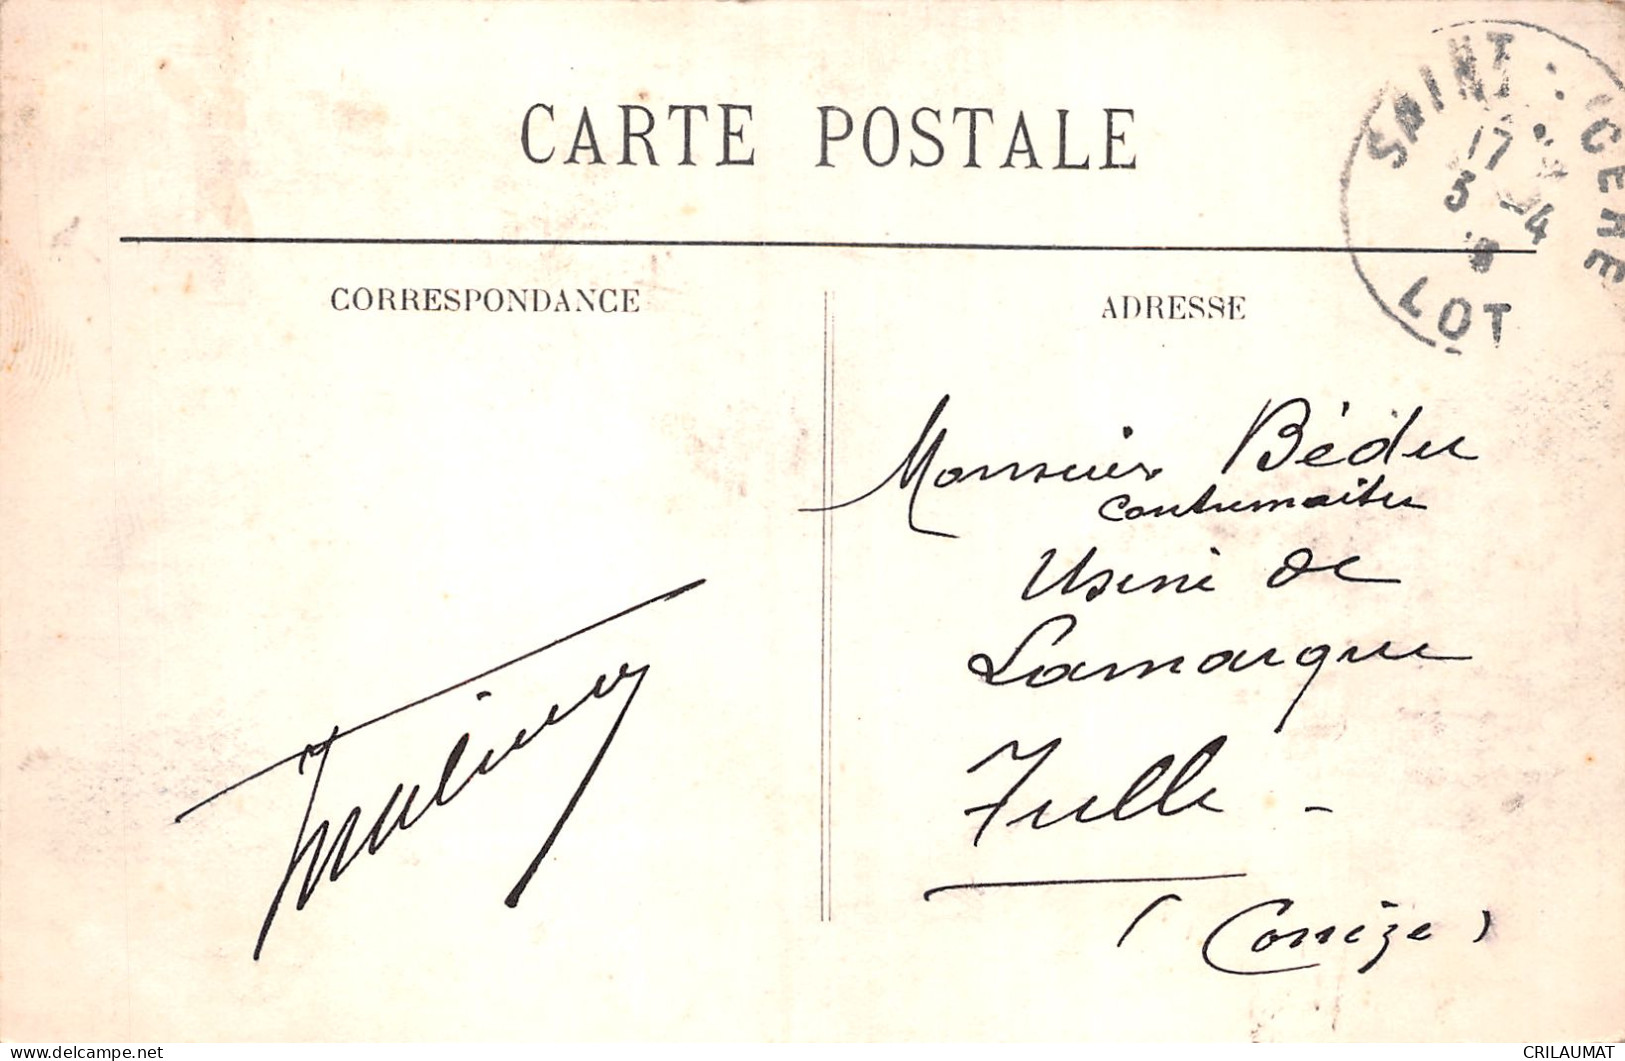 CARTE POSTALE
SAINT-CÉRÉ
17
5-4
LOT
CORRESPONDANCE
ADRESSE
Monsieur Bédu
Contremaitre
Usine de
Lamarque
Tulle -
(Corrèze)
delcampe.net
CRILAUMAT